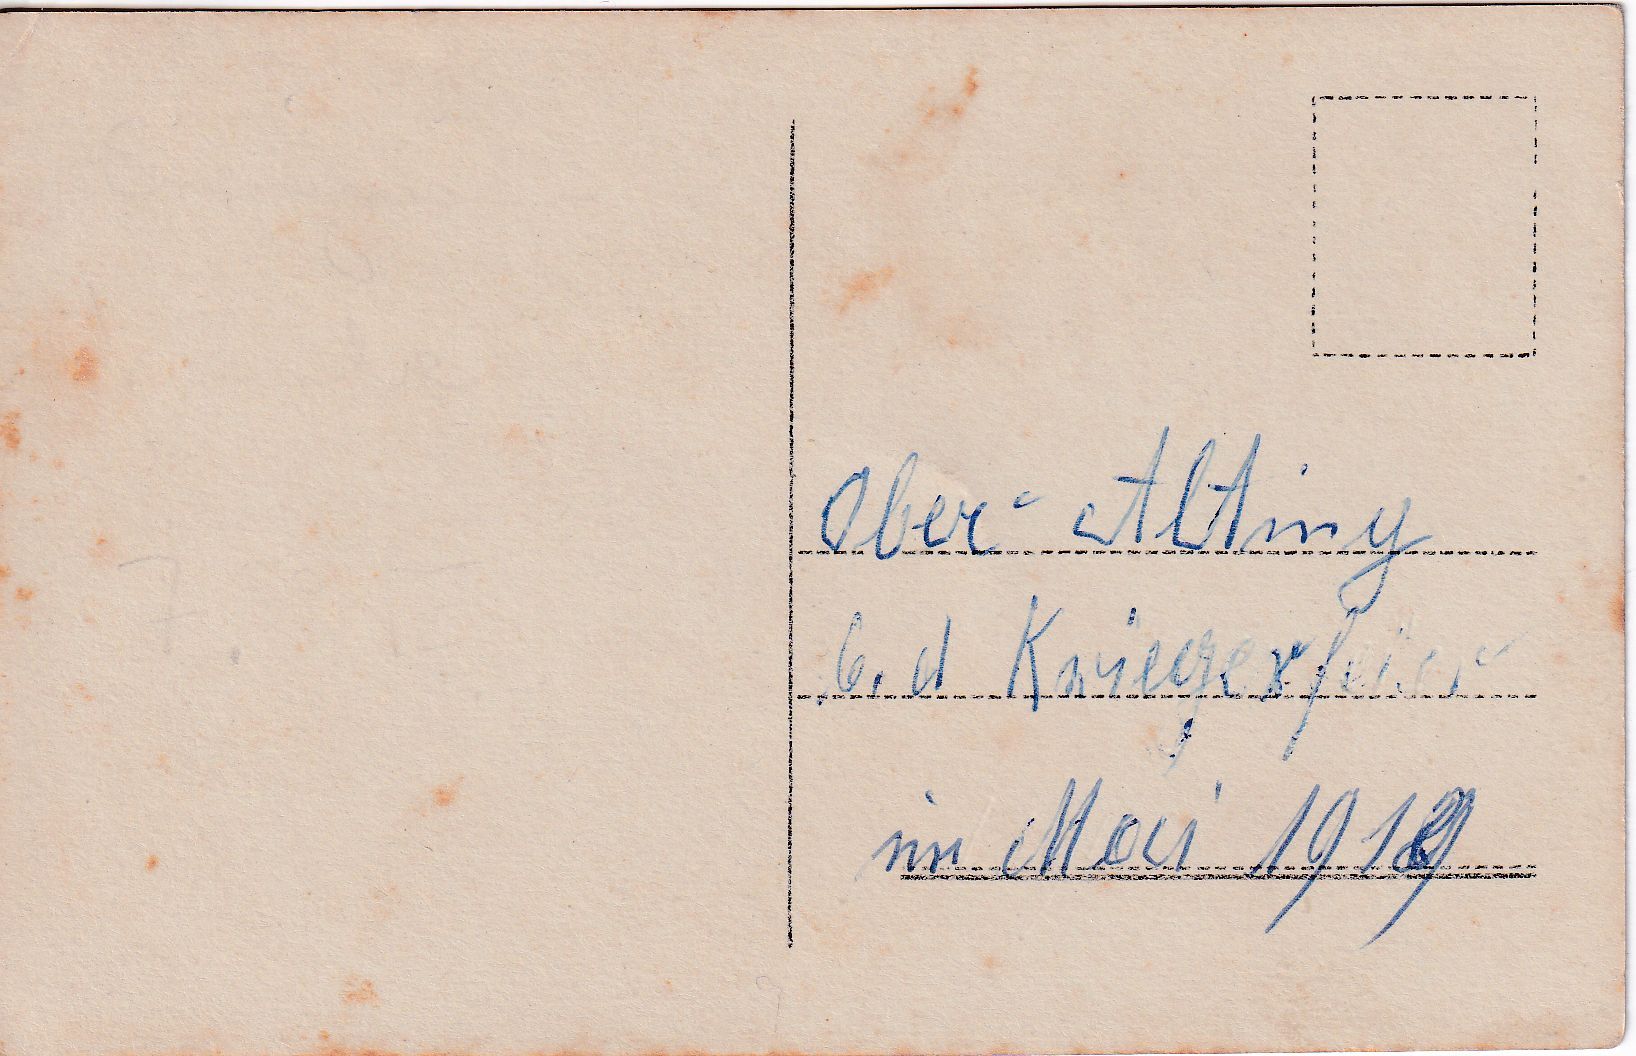 Ober- Alting
b. d Kriegerfeier
im Mai 1919